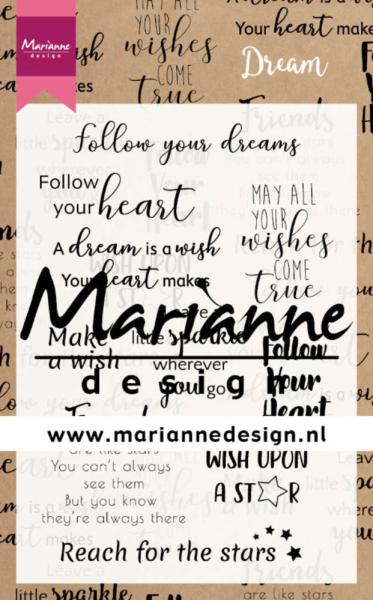 Marianne
design
MAY ALL
YOUR
wishes
COME
true
Your heart makes
Dream
Follow your dreams
Follow
your heart
MAY ALL
YOUR
wishes
COME
true
A dream is a wish
Your heart makes
Leave a
little sparkle
wherever
you go
Make
a wish
Follow
Your
Heart
Marianne
design
www.mariannedesign.nl
are like stars
You can't always
see them
But you know
they're always there
WISH UPON
A ST R
Reach for the stars
little sparkle
Friends
are like stars